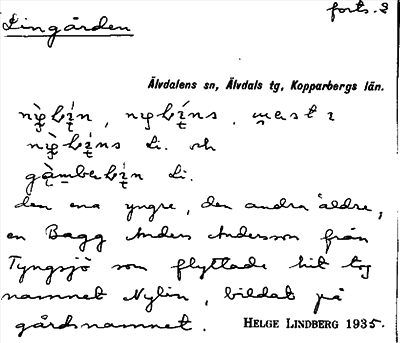 forts. 2
Lingården
Älvdalens sn, Älvdals tg, Kopparbergs län.
mest i
Li. och
Li.
den ena yngre, den andra äldre,
en Bagg Anders Andersson från
Tyngsjö som flyttade hit tog
namnet Nylin, bildat på
gårdsnamnet. HELGE LINDBERG 1935.